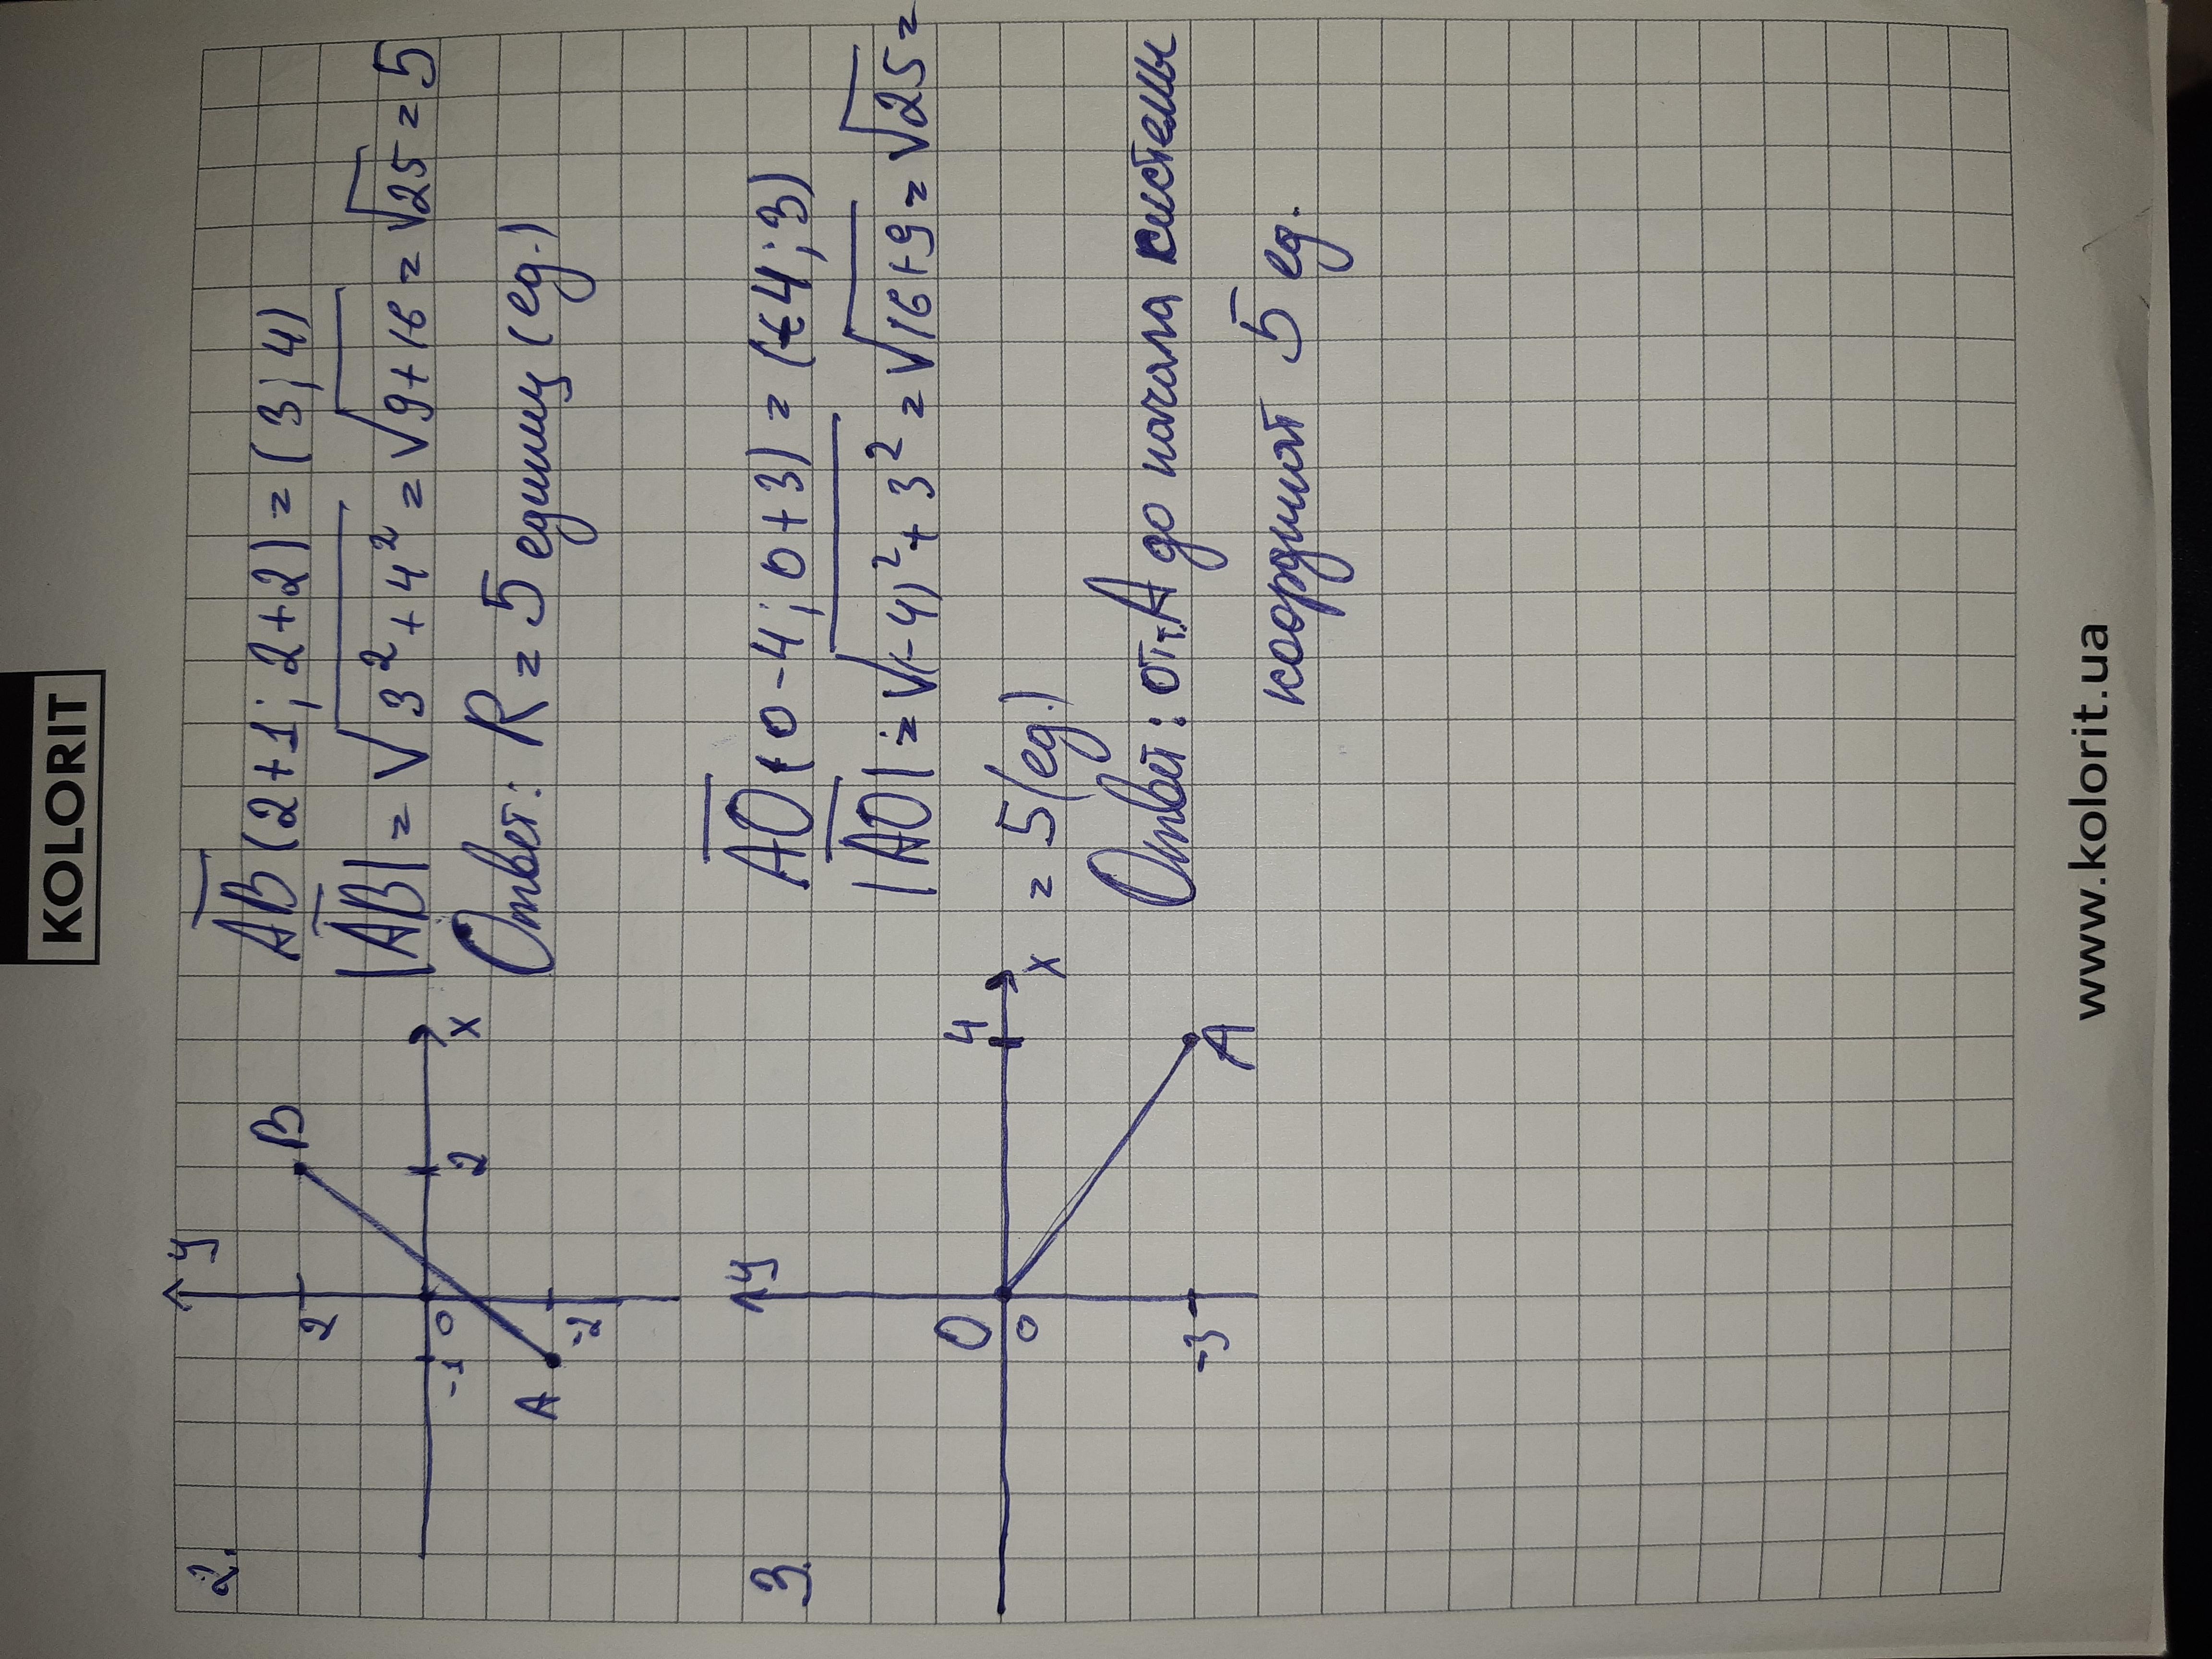 KOLORIT
2.
y
2
B
-1
0
2
x
A
-2
AB (2+1; 2+2) = (3; 4)
|AB| = √3² + 4² = √9+16 = √25 = 5
Ответ: R = 5 единиц (ед.)
3.
y
O
0
4
x
-3
A
AO (0-4; 0+3) = (-4; 3)
|AO| = √(-4)² + 3² = √16+9 = √25 =
= 5 (ед.)
Ответ: от т. А до начала системы
координат 5 ед.
www.kolorit.ua